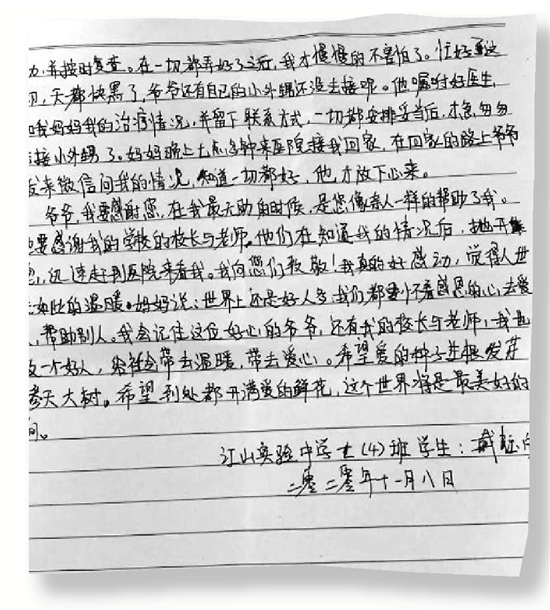 为,并按时复查。在一切都弄好了之后,我才慢慢的不害怕了。忙好
天都快黑了,爷爷还有自己的小外甥还没去接呢。他嘱咐好医生,
我妈妈我的治疗情况,并留下联系方式,一切都安排妥当后,才急匆匆
接小外甥了。妈妈晚上七点多钟来医院接我回家,在回家的路上爷爷
发来微信问我的情况,知道一切都好,他才放下心来。
爷爷,我要感谢您,在我最无助的时候,是您像亲人一样的帮助了我。
要感谢我的学校的校长与老师。他们在知道我的情况后,抛开
迅速赶到医院来看我。我向您们致敬!我真的好感动,觉得人世
如此的温暖。妈妈说:世界上还是好人多,我们都要怀着感恩的心去爱
,帮助别人。我会记住这位好心的爷爷,还有我的校长与老师,我
做一个好人,给社会带去温暖,带去爱心。希望爱的种子生根发芽
参天大树。希望到处都开满爱的鲜花,这个世界将是最美好的
间。
江山实验中学七(4)班学生:戴
二零二零年十一月八日